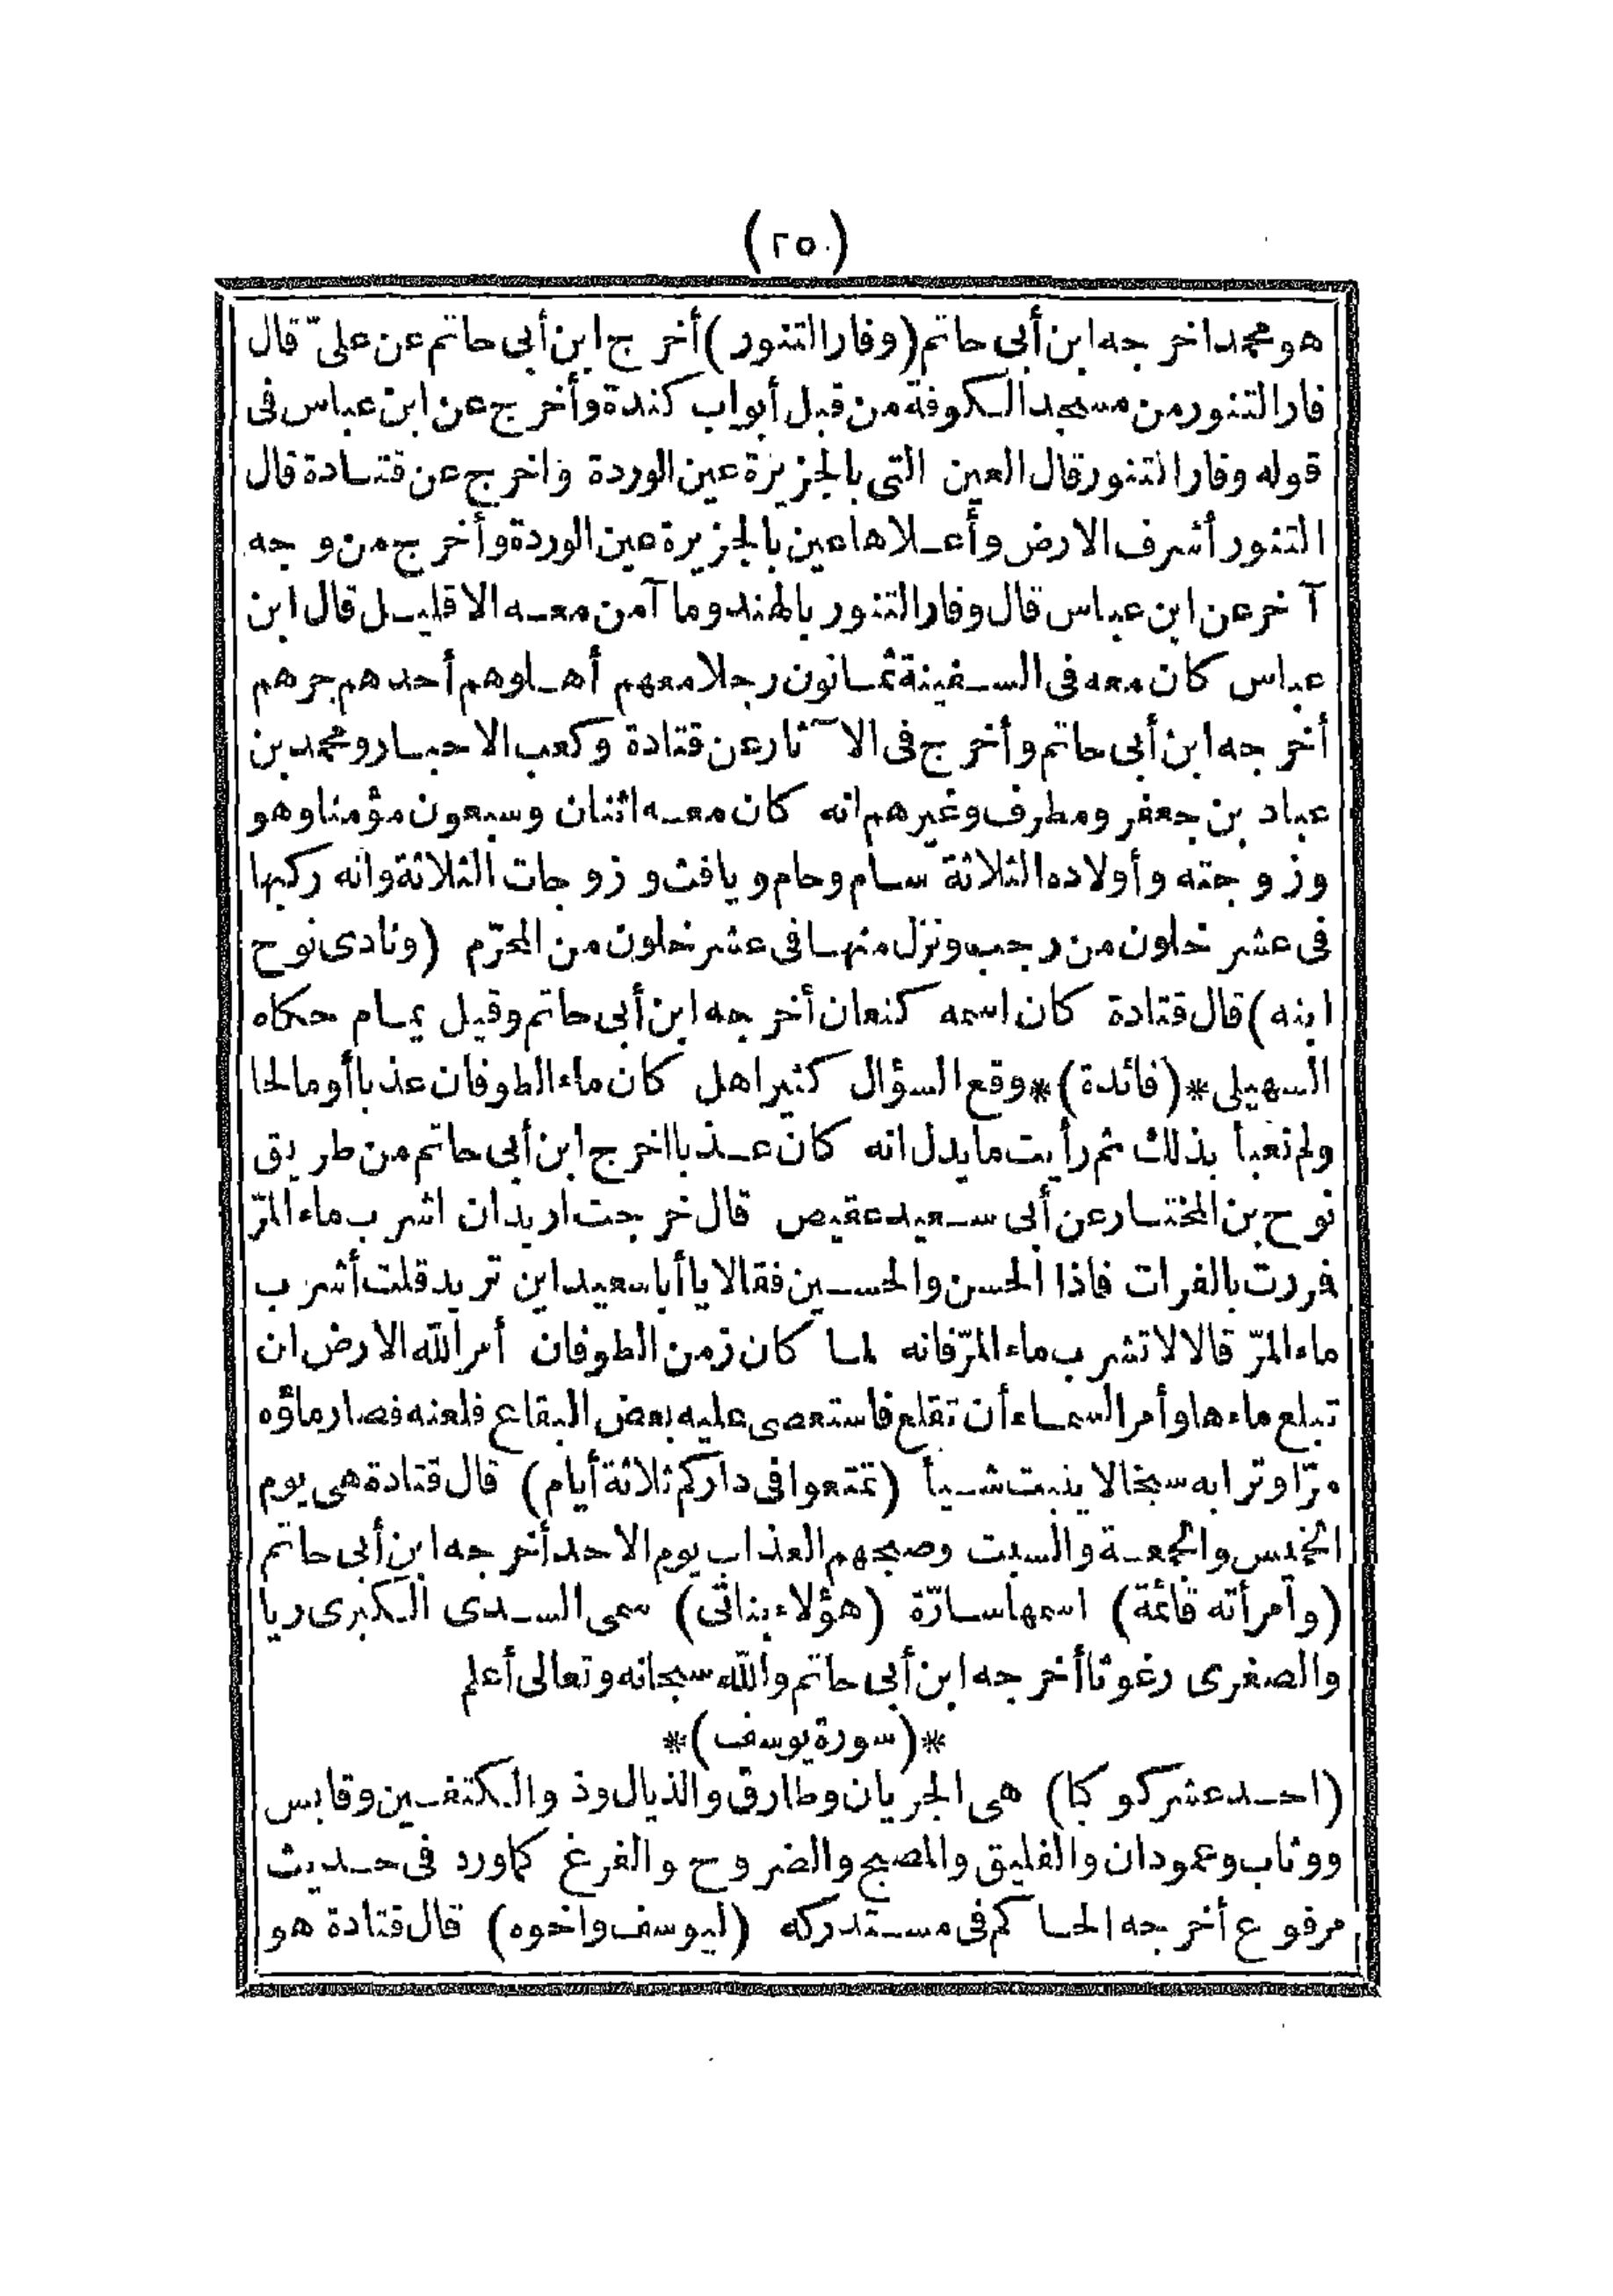 (٢٥٠)
هو محمد اخرجه ابن أبى حاتم (وفار التنور) أخرج ابن أبى حاتم عن علىّ قال
فار التنور من مسجد الكوفة من قبل أبواب كندة وأخرج عن ابن عباس فى
قوله وفار التنور قال العين التى بالجزيرة عين الوردة واخرج عن قتادة قال
التنور أشرف الارض وأعلاها عين بالجزيرة عين الوردة وأخرج من وجه
آخر عن ابن عباس قال وفار التنور بالهند وما آمن معه الا قليل قال ابن
عباس كان معه فى السفينة ثمانون رجلا معهم أهلوهم أحدهم جرهم
أخرجه ابن أبى حاتم وأخرج فى الآثار عن قتادة وكعب الاحبار ومحمد بن
عباد بن جعفر ومطرف وغيرهم انه كان معه اثنان وسبعون مؤمنا وهو
وزوجته وأولاده الثلاثة سام وحام ويافث وزوجات الثلاثة وانه ركبها
فى عشر خلون من رجب ونزل منها فى عشر خلون من المحرّم (ونادى نوح
ابنه) قال قتادة كان اسمه كنعان أخرجه ابن أبى حاتم وقيل يمام حكاه
السهيلى *(فائدة)* وقع السؤال كثيرا هل كان ماء الطوفان عذبا أو مالحا
ولم نعبأ بذلك ثم رأيت ما يدل انه كان عذبا اخرج ابن أبى حاتم من طريق
نوح بن المختار عن أبى سعيد عقيص قال خرجت اريد ان اشرب ماء المرّ
فمررت بالفرات فاذا الحسن والحسين فقالا يا أبا سعيد اين تريد قلت أشرب
ماء المرّ قالا لا تشرب ماء المرّ فانه لما كان زمن الطوفان أمر الله الارض ان
تبلع ماءها وأمر السماء أن تقلع فاستعصى عليه بعض البقاع فلعنه فصار ماؤه
مرّا وترابه سبخا لا ينبت شيأ (تمتعوا فى داركم ثلاثة أيام) قال قتادة هى يوم
الخميس والجمعة والسبت وصبحهم العذاب يوم الاحد أخرجه ابن أبى حاتم
(وامرأته قائمة) اسمها سارّة (هؤلاء بناتى) سمى السدى الكبرى ريا
والصغرى رغوثا أخرجه ابن أبى حاتم والله سبحانه وتعالى أعلم
*(سورة يوسف)*
(احد عشر كوكبا) هى الجريان وطارق والذيال وذو الكتفين وقابس
ووثاب وعمودان والفليق والمصبح والضروح والفرغ كما ورد فى حديث
مرفوع أخرجه الحاكم فى مستدركه (ليوسف واخوه) قال قتادة هو